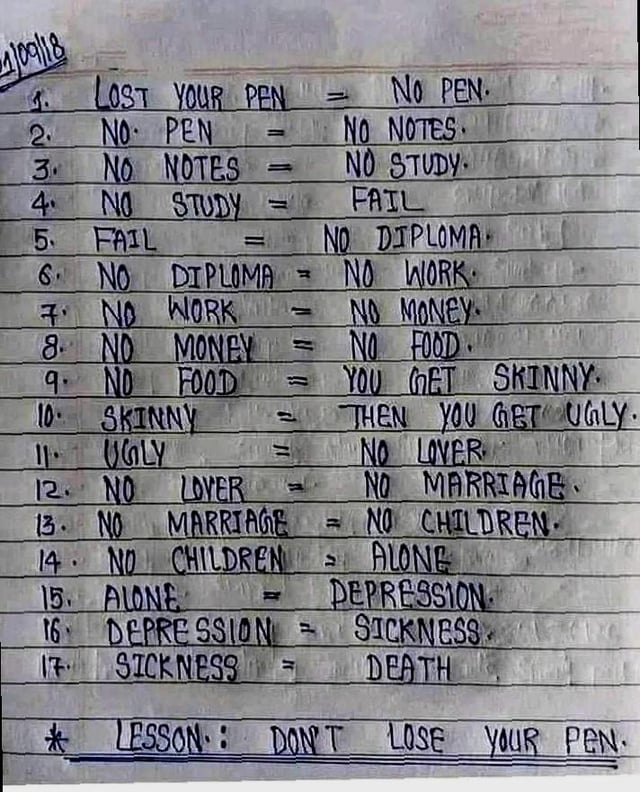 01/09/18
1. LOST YOUR PEN = NO PEN.
2. NO. PEN = NO NOTES.
3. NO NOTES = NO STUDY.
4. NO STUDY = FAIL
5. FAIL = NO DIPLOMA.
6. NO DIPLOMA = NO WORK.
7. NO WORK = NO MONEY.
8. NO MONEY = NO FOOD.
9. NO FOOD = YOU GET SKINNY.
10. SKINNY = THEN YOU GET UGLY.
11. UGLY = NO LOVER.
12. NO LOVER = NO MARRIAGE.
13. NO MARRIAGE = NO CHILDREN.
14. NO CHILDREN = ALONE
15. ALONE = DEPRESSION.
16. DEPRESSION = SICKNESS.
17. SICKNESS = DEATH
* LESSON.: DON'T LOSE YOUR PEN.